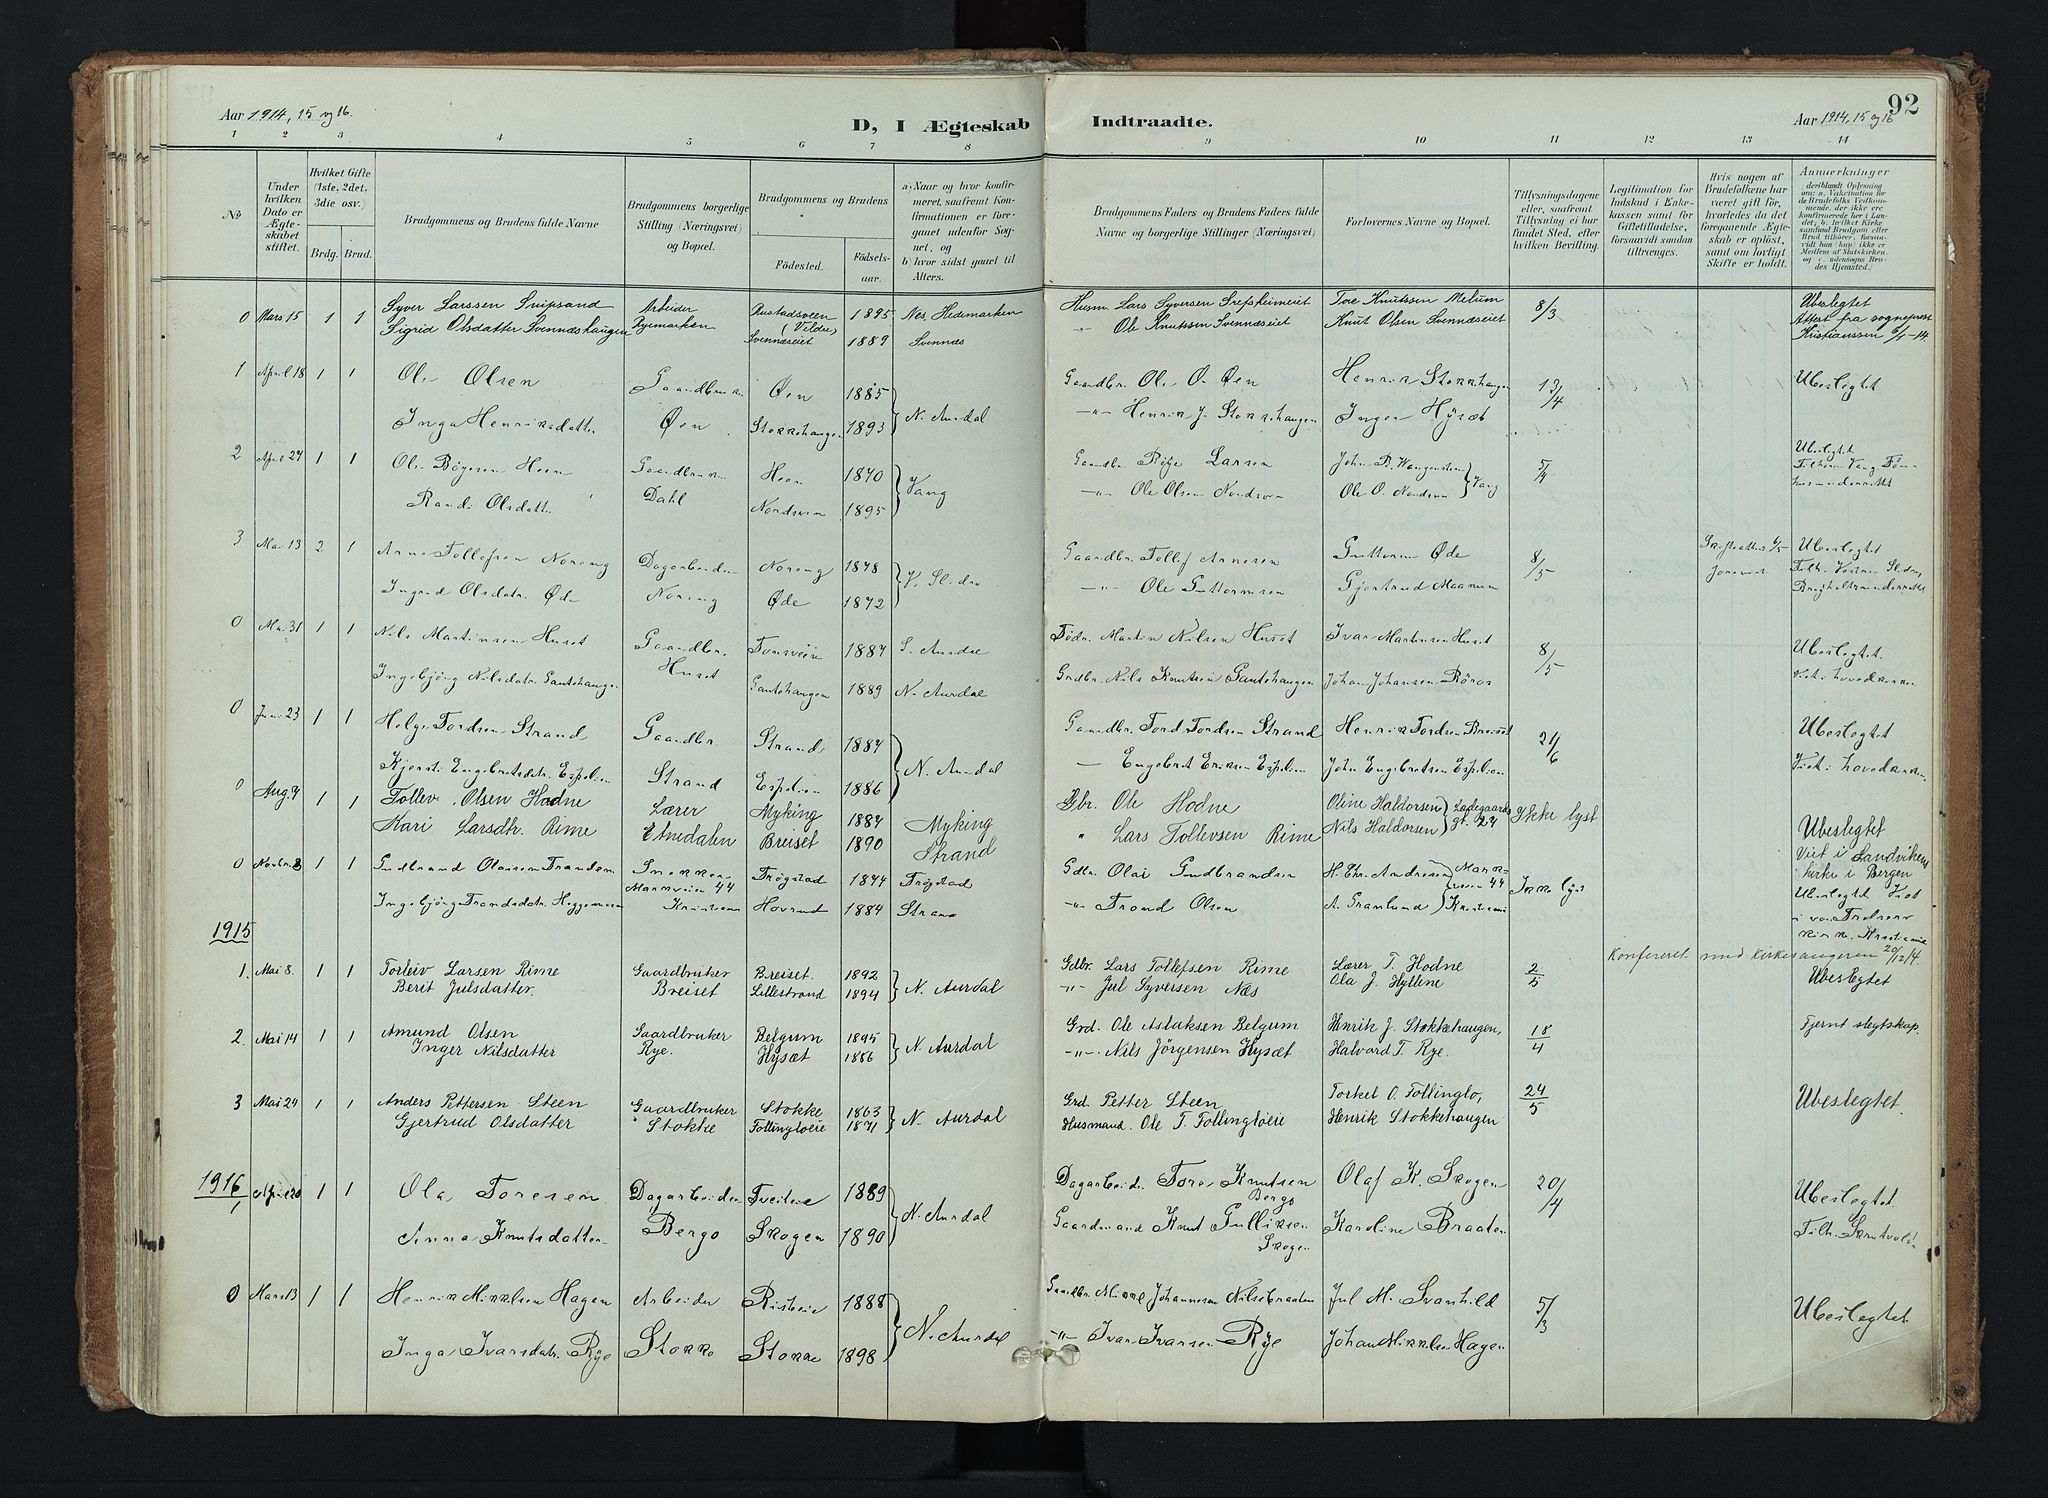 92
Aar 1914, 15 og 16.
D, I Ægteskab Indtraadte.
Aar 1914, 15 og 16
1 2 3 4 5 6 7 8 9 10 11 12 13 14
No
Under hvilken Dato er Ægteskabet stiftet.
Hvilket Gifte (1ste, 2det, 3die osv.)
Brdg. Brud.
Brudgommens og Brudens fulde Navne
Brudgommens borgerlige Stilling (Næringsvei) og Bopæl.
Brudgommens og Brudens
Födested.
Födselsaar.
a, Naar og hvor konfirmeret, saafremt Konfirmationen er foregaaet udenfor Sognet, og
b) hvor sidst gaaet til Alters.
Brudgommens Faders og Brudens Faders fulde Navne og borgerlige Stillinger (Næringsvei)
Forlovernes Navne og Bopæl.
Tillysningsdagene eller, saafremt Tillysning ei har fundet Sted, efter hvilken Bevilling.
Legitimation for Indskud i Enkekassen samt for Giftetilladelse, forsaavidt saadan tiltrænges.
Hvis nogen af Brudefolkene har været gift før, hvorledes da det foregaaende Ægteskab er opløst, samt om lovligt Skifte er holdt.
Anmerkninger
deriblandt Oplysning om: a. Vakcination for Brudefolks Vedkommende, der ikke ere konfirmerede her i Landet; b. hvilket Kirkesamfund Brudgom eller Brud tilhører, forsaavidt han (hun) ikke er Medlem af Statskirken, og c. udensogns Brudes Hjemsted.
0 Mars 15 1 1 Syver Larssen Snipsand Arbeider Rustadsveen 1895 Nes Hedemarken Husm Lars Syversen Tore Knutssen Melum 8/3 Ubeslegtet
Sigrid Olsdatter Svennæshaugen Ryemarken (Veldre) Svennæseiet 1889 Svennæs " Ole Knutssen Svennæseiet Knut Olsen Svennæseiet Attest fra sogneprest Kristianssen
1 April 18 1 1 Ole Olsen Gaardbruker Øen 1885 N. Aurdal Gaardbr. Ole O. Øen Henrik Stokkhaugen 13/4 Ubeslegtet
Inga Henriksdatter Øen Stokkehaugen 1893 -"- Henrik J. Stokkehaugen Inger Hysæt
2 April 27 1 1 Ole Bøgesen Heen Gaardbruker Heen 1870 Vang Gaardbr. Larsen John B. Wangensteen 5/4 Ubeslegtet
Randi Olsdatter Dahl Nordsveen 1895 -"- Ole Olsen Nordsveen Ole O. Nordsveen Vang
3 Mai 13 2 1 Arne Tollefsen Noreng Dagarbeider Noreng 1878 V. Slidre Gaardbr. Tollef Arnesen Guttorm Øde 8/5 Ubeslegtet
Ingrid Olsdatr. Øde Noreng Øde 1872 -"- Ole Guttormsen Gjertrud
0 Mai 31 1 1 Nils Martinsen Huset Gaardbr. 1887 S. Aurdal Martin Nilsen Huset Ivar Martinsen Huset 8/5 Ubeslegtet.
Ingebjörg Nilsdatr. Gautehaugen Huset Gautehaugen 1889 N. Aurdal Grdbr. Nils Knutsen Gautehaugen Johan Johansen Röros Viet i hovedkirken
0 Juni 23 1 1 Helge Tordsen Strand Gaardbr. Strand 1887 N. Aurdal Gaardbr. Tord Tordsen Strand Henrik Tordsen Breiset 21/6 Ubeslegtet
Kjersti Engebretsdatr. Espelien Strand Espelien 1886 - Engebret Eriksen Espelien John Engebretsen Espelien Viet i hovedkirken
0 Aug. 7 1 1 Tollev Olsen Hodne Lærer Myking 1887 Myking Gbr. Ole Hodne Oline Haldorsen Ladegaards gt. 24 Ikke lyst Ubeslegtet
Kari Larsdtr. Rime Etnedalen Breiset 1890 Strand " Lars Tollevsen Rime Nils Haldorsen Viet i Sandvikens kirke i Bergen
0 Novbr. 8 1 1 Gudbrand Olaisen Trandem Snekker Trøgstad 1877 Trøgstad Gdbr. Olai Gudbrandsen H. Chr. Andresen Ikke lyst Ubeslegtet Viet
Ingebjörg Trondsdatr. Heggemoen Markveien 44 Kristiania Hovrud 1884 Strand -"- Trond Olsen A. Granlund Kristiania
1915
Konfereret med kirkesangeren 20/12 14.
1. Mai 8. 1 1 Torleiv Larsen Rime Gaardbruker Breiset. 1892 N. Aurdal Gdbr. Lars Tollefsen Rime Lærer T. Hodne 2/5 Ubeslegtet
Berit Julsdatter. Breiset Lillestrand 1894 -"- Jul Syversen Næs Ola J. Hyllene
2. Mai 14 1 1 Amund Olsen Gaardbruker Belgum 1895 N. Aurdal Grd. Ole Aslaksen Belgum Henrik J. Stokkehaugen, 18/4 Fjernt slegtskap.
Inger Nilsdatter Rye. Hysæt 1886 -"- Nils Jörgensen Hysæt Halvard T. Rye.
3 Mai 24 1 1 Anders Pettersen Steen Gaardbruker Stokke 1863 N. Aurdal Grd. Petter Steen Torkel O. Follinglo, 24/5 Ubeslegtet.
Gjertrud Olsdatter Stokke Follingloeie 1871 Husmand. Ole T. Follingloeie Henrik Stokkehaugen
1916
1 April 20 1 1 Ola Toresen Dagarbeider Tveiteie 1889 N. Aurdal Dagarbeider Tore Knutsen Bergo Olaf K. Skogen 20/4 Ubeslegtet.
Anna Knutsdatter Bergo Skogen 1890 Gaardmand Knut Gulliksen Skogen Karoline Braaten
0 Mars 13 1 1 Henrik Mikkelsen Hagen Arbeider Risteeie 1888 N. Aurdal Gaardbr. Mikkel Johannesen Nilsebraaten Jul M. Svanhild 5/3 Ubeslegtet
Inga Ivarsdatr. Rye Stokke Stokke 1898 -"- Ivar Ivarsen Rye Johan Mikkelsen Hagen